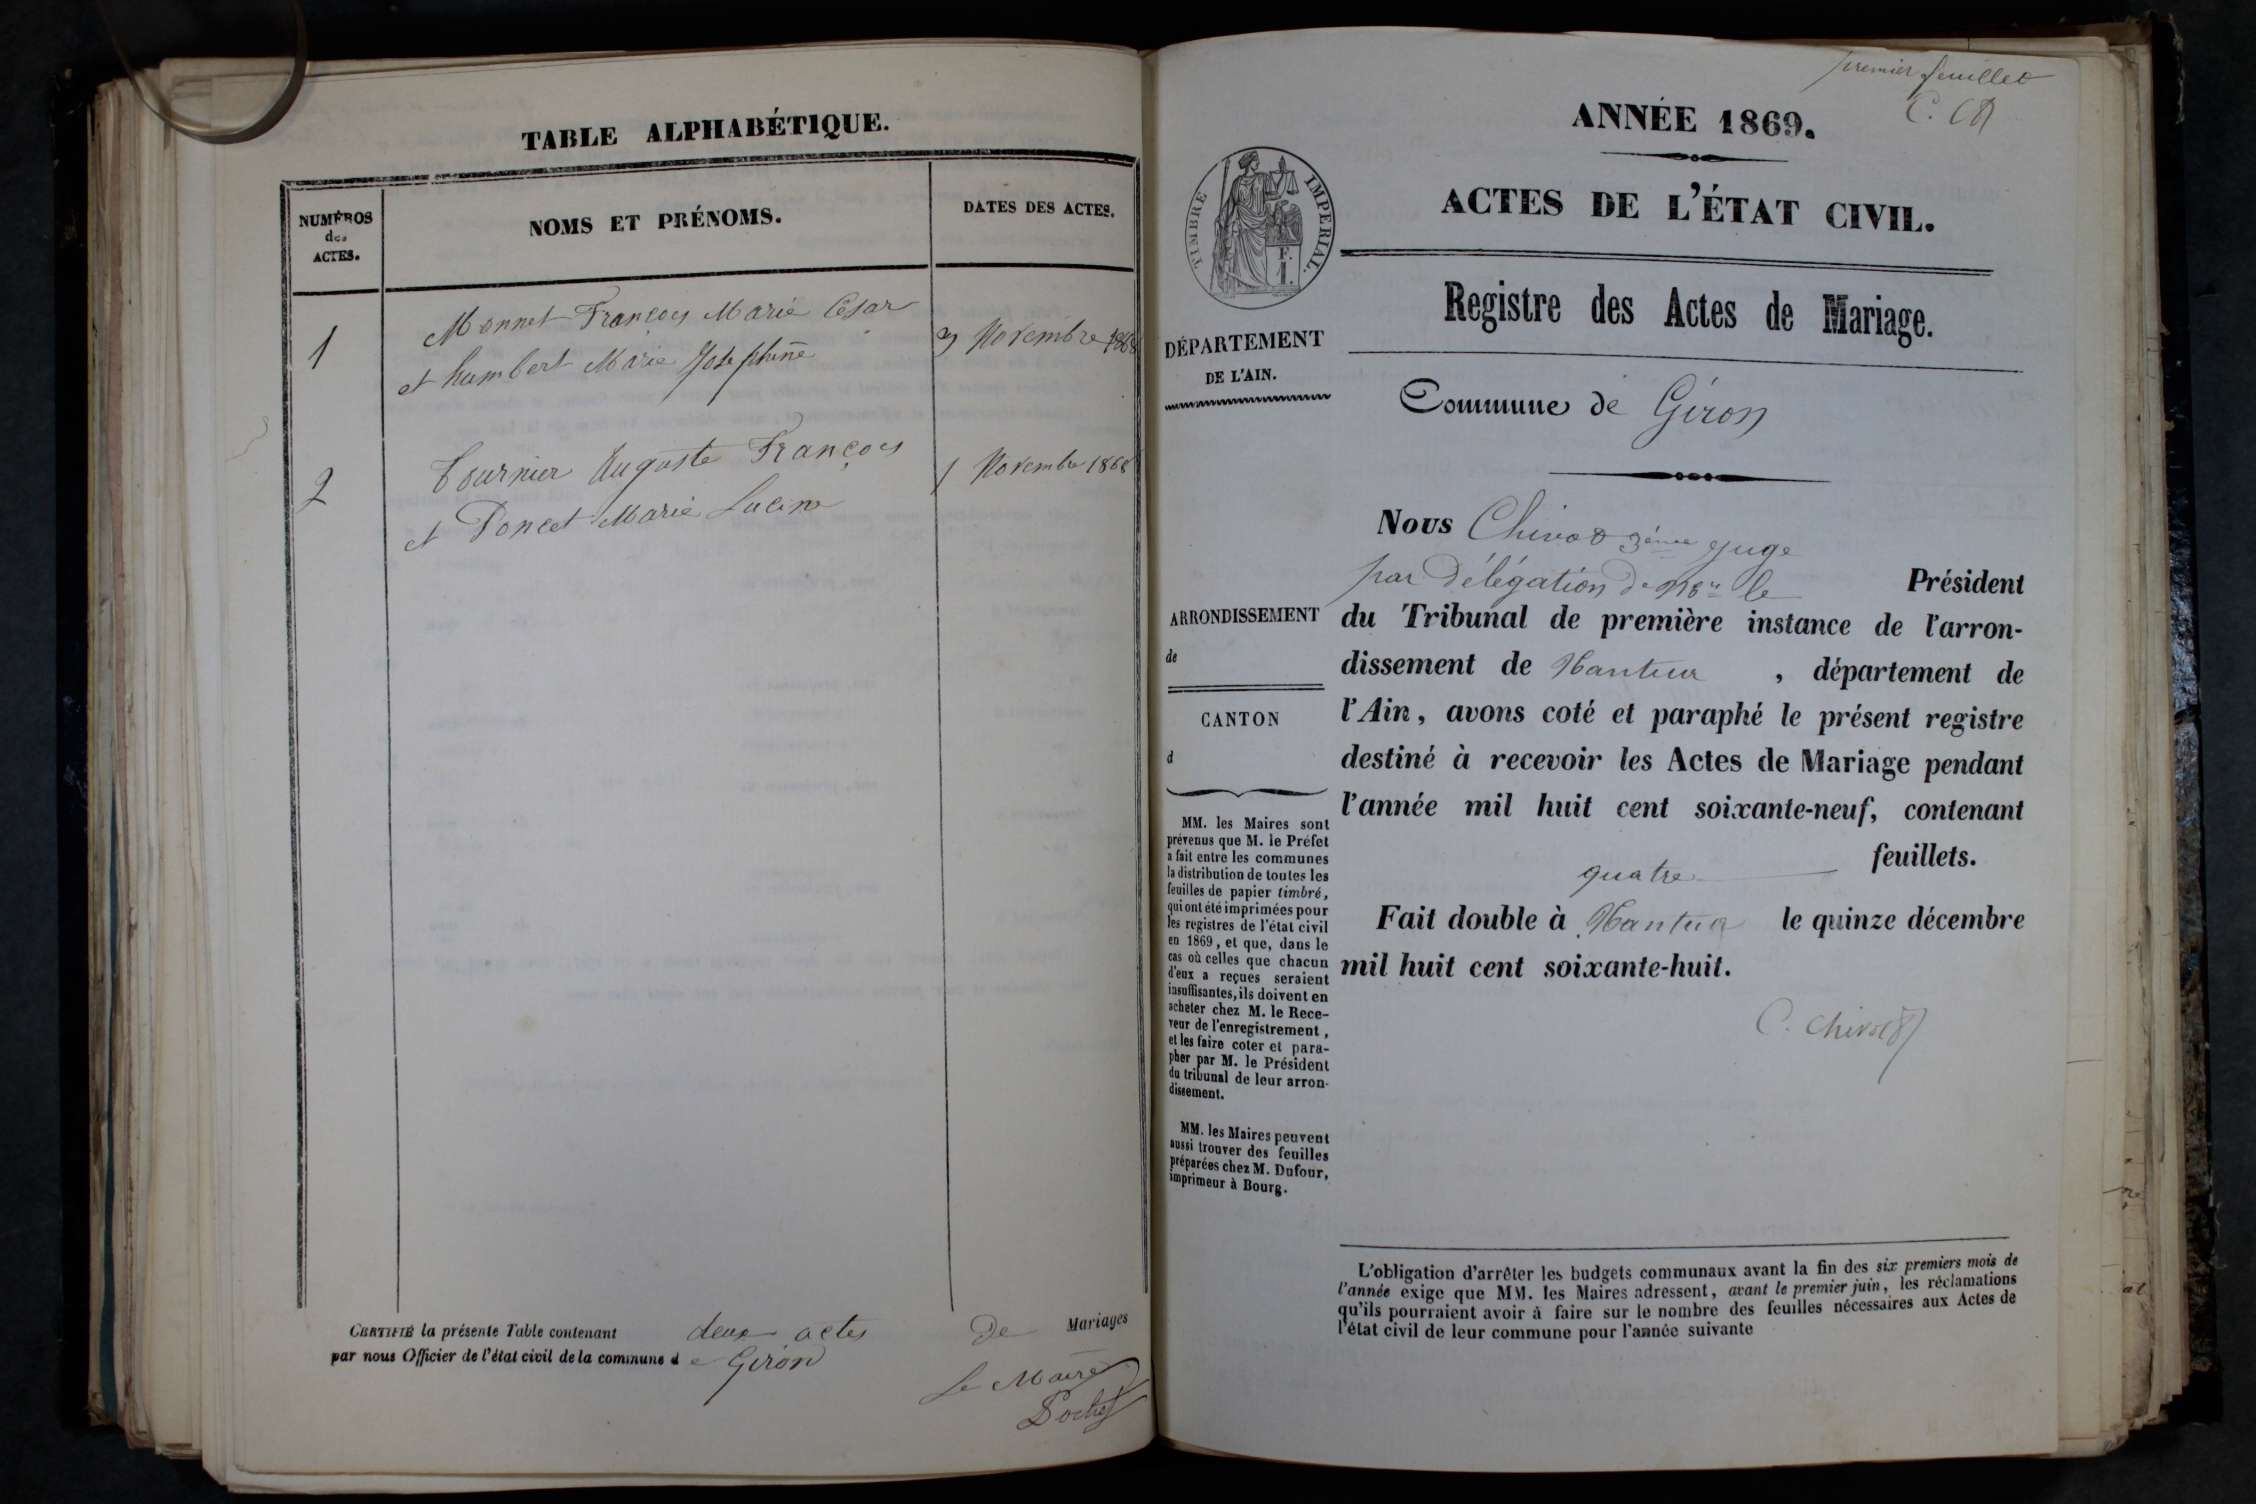 TABLE ALPHABÉTIQUE.
NUMÉROS
des
ACTES.
NOMS ET PRÉNOMS.
DATES DES ACTES.
1
Monnet François Marie César
et humbert Marie Josephine
3 Novembre 1868
2
Tournier Auguste François
et Poncet Marie
1 Novembre 1868
CERTIFIÉ la présente Table contenant deux actes De Mariages
par nous Officier de l'état civil de la commune de Giron
Le Maire
premier feuillet
ANNÉE 1869.
ACTES DE L'ÉTAT CIVIL.
TIMBRE IMPERIAL.
F.
1.
Registre des Actes de Mariage.
DÉPARTEMENT
DE L'AIN.
Commune de Giron
Nous Chivot 3ème juge
par Délégation de Mr le Président
ARRONDISSEMENT
de
CANTON
d
du Tribunal de première instance de l'arron-
dissement de Nantua, département de
l'Ain, avons coté et paraphé le présent registre
destiné à recevoir les Actes de Mariage pendant
l'année mil huit cent soixante-neuf, contenant
quatre feuillets.
Fait double à Nantua le quinze décembre
mil huit cent soixante-huit.
C. Chivot
MM. les Maires sont
prévenus que M. le Préfet
a fait entre les communes
la distribution de toutes les
feuilles de papier timbré,
qui ont été imprimées pour
les registres de l'état civil
en 1869, et que, dans le
cas où celles que chacun
d'eux a reçues seraient
insuffisantes, ils doivent en
acheter chez M. le Rece-
veur de l'enregistrement,
et les faire coter et para-
pher par M. le Président
du tribunal de leur arron-
dissement.
MM. les Maires peuvent
aussi trouver des feuilles
préparées chez M. Dufour,
imprimeur à Bourg.
L'obligation d'arrêter les budgets communaux avant la fin des six premiers mois de
l'année exige que MM. les Maires adressent, avant le premier juin, les réclamations
qu'ils pourraient avoir à faire sur le nombre des feuilles nécessaires aux Actes de
l'état civil de leur commune pour l'année suivante